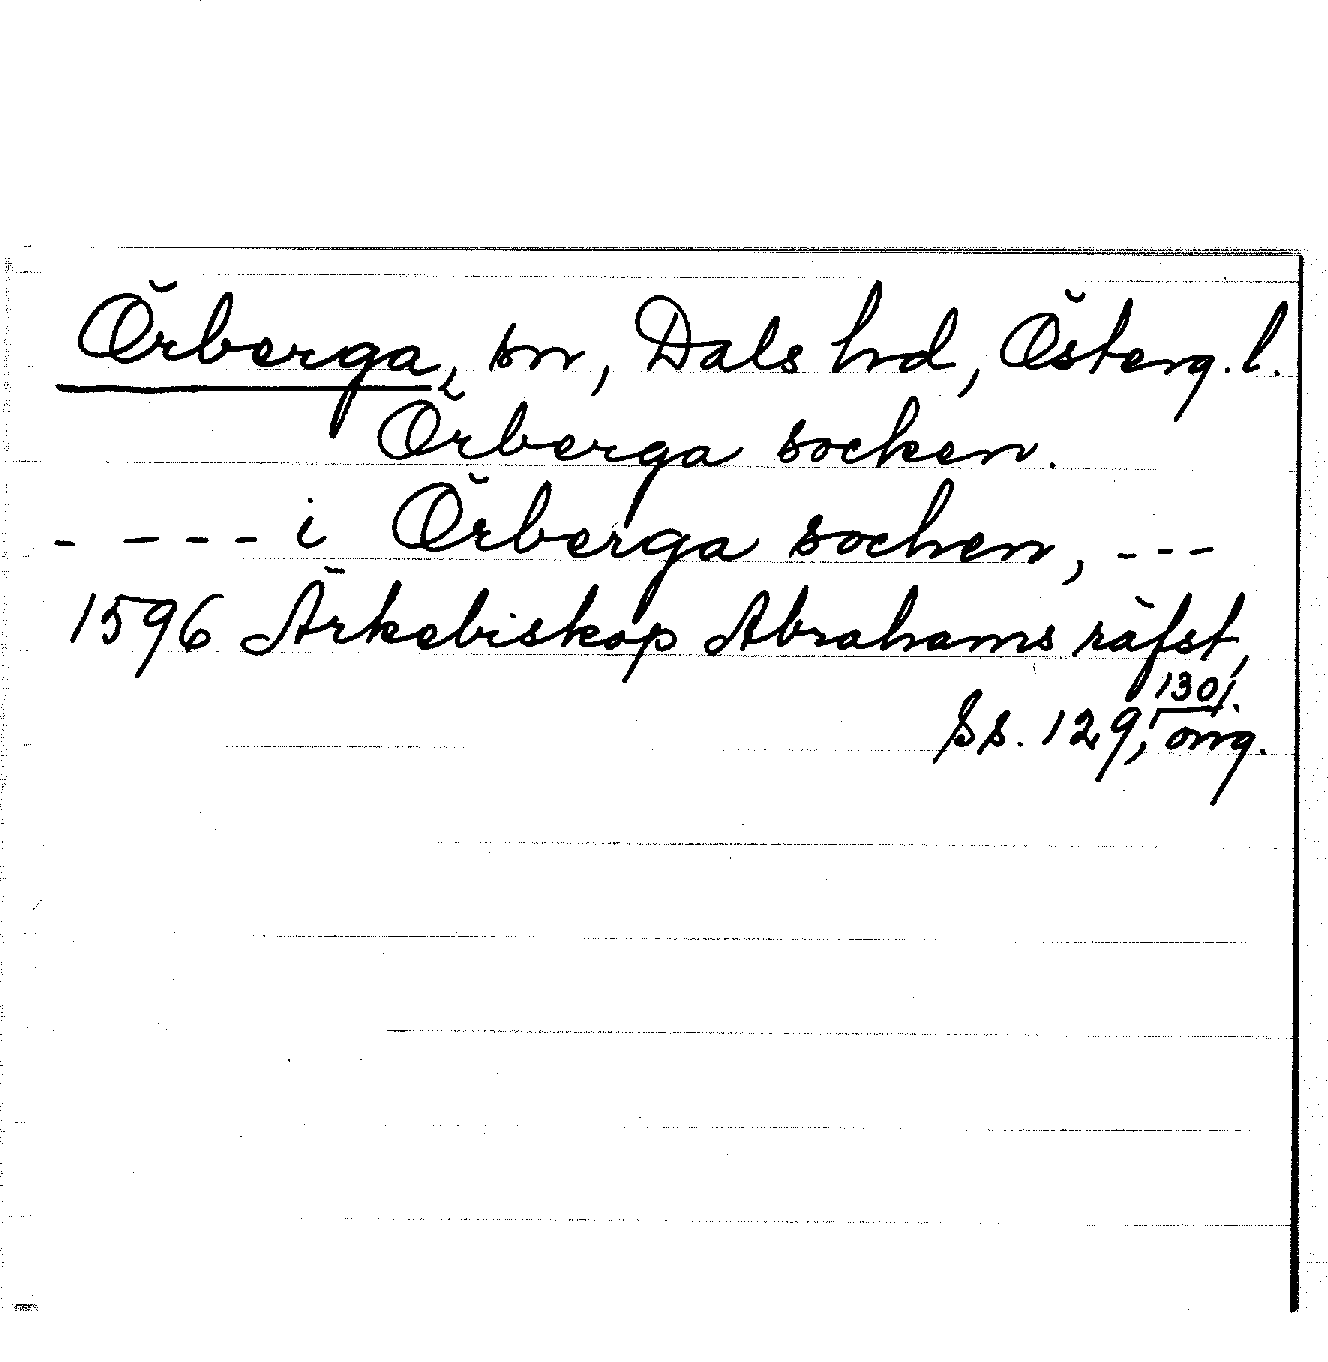 Örberga, sn, Dals hd, Österg. l.
Örberga socken.
- - - - - i Örberga sochen, - - -
1596 Ärkebiskop Abrahams räfst,
ss. 129, 130/. orig.